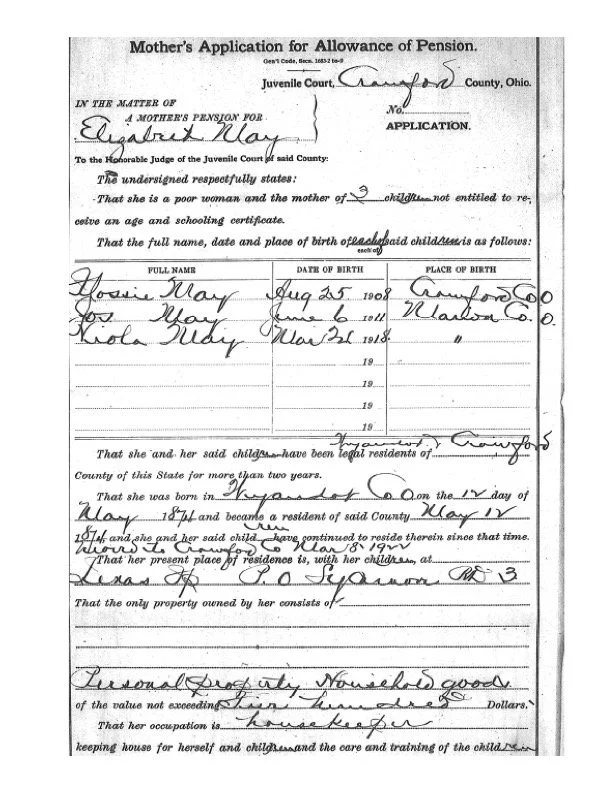 Mother's Application for Allowance of Pension.
Gen'l Code, Secs. 1683-2 to-9
Juvenile Court, Crawford County, Ohio.
IN THE MATTER OF
A MOTHER'S PENSION FOR
Elizabeth May
No.
APPLICATION.
To the Honorable Judge of the Juvenile Court of said County:
The undersigned respectfully states:
That she is a poor woman and the mother of 3 children not entitled to re-
ceive an age and schooling certificate.
That the full name, date and place of birth of each of said children is as follows:
each of
FULL NAME DATE OF BIRTH PLACE OF BIRTH
Flossie May Aug 25 1908 Crawford Co O
Jos. May June 6 1911 Marion Co. O.
Viola May Mar 21 1918. "
19
19
19
19
Wyandot & Crawford
That she and her said children have been legal residents of
County of this State for more than two years.
That she was born in Wyandot Co O on the 12 day of
May 1874 and became a resident of said County May 12
1874 and she and her said children have continued to reside therein since that time.
moved to Crawford Co Mar 8 1922
That her present place of residence is, with her children, at
Texas Tp P.O Sycamore Rt 3
That the only property owned by her consists of
Personal property Household goods
of the value not exceeding hundred Dollars.
That her occupation is housekeeper
keeping house for herself and children and the care and training of the children